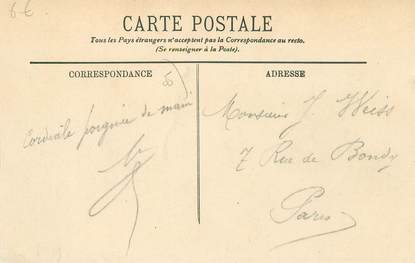 6€
CARTE POSTALE
Tous les Pays étrangers n'acceptent pas la Correspondance au recto.
(Se renseigner à la Poste).
CORRESPONDANCE
Cordiale poignée de main
ADRESSE
Monsieur J. Weiss
7 Rue de Bondy
Paris